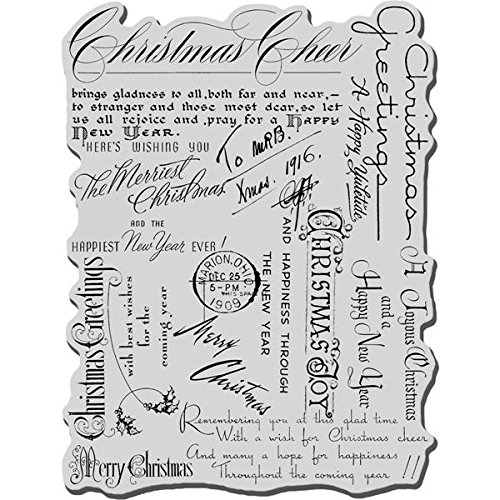 Christmas Cheer
brings gladness to all, both far and near,—
to stranger and those most dear, so let
us all rejoice and pray for a Happy
New Year.
HERE'S WISHING YOU
The Merriest
Christmas
AND THE
HAPPIEST New Year EVER!
To MRB.
Xmas. 1916.
Christmas
Greetings
A Happy Yuletide
MARION, OHIO.
DEC 25
5-PM
1909
CHRISTMAS JOY
AND HAPPINESS THROUGH
THE NEW YEAR
Christmas Greetings
with best wishes
for the
coming year
Merry
Christmas
A Joyous Christmas
and a
Happy New Year
Merry Christmas
Remembering you at this glad time
With a wish for Christmas cheer
And many a hope for happiness
Throughout the coming year !!!